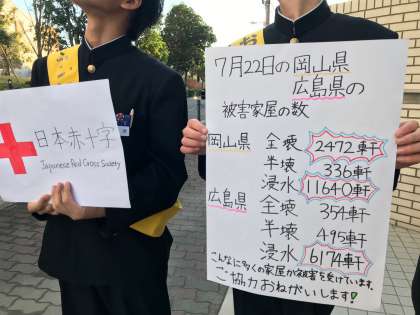 日本赤十字
Japanese Red Cross Society
7月22日の岡山県
広島県の
被害家屋の数
岡山県 全壊 2472軒
半壊 336軒
浸水 11640軒
広島県 全壊 354軒
半壊 495軒
浸水 6174軒
こんなに多くの家屋が被害を受けています。
ご協力おねがいします!